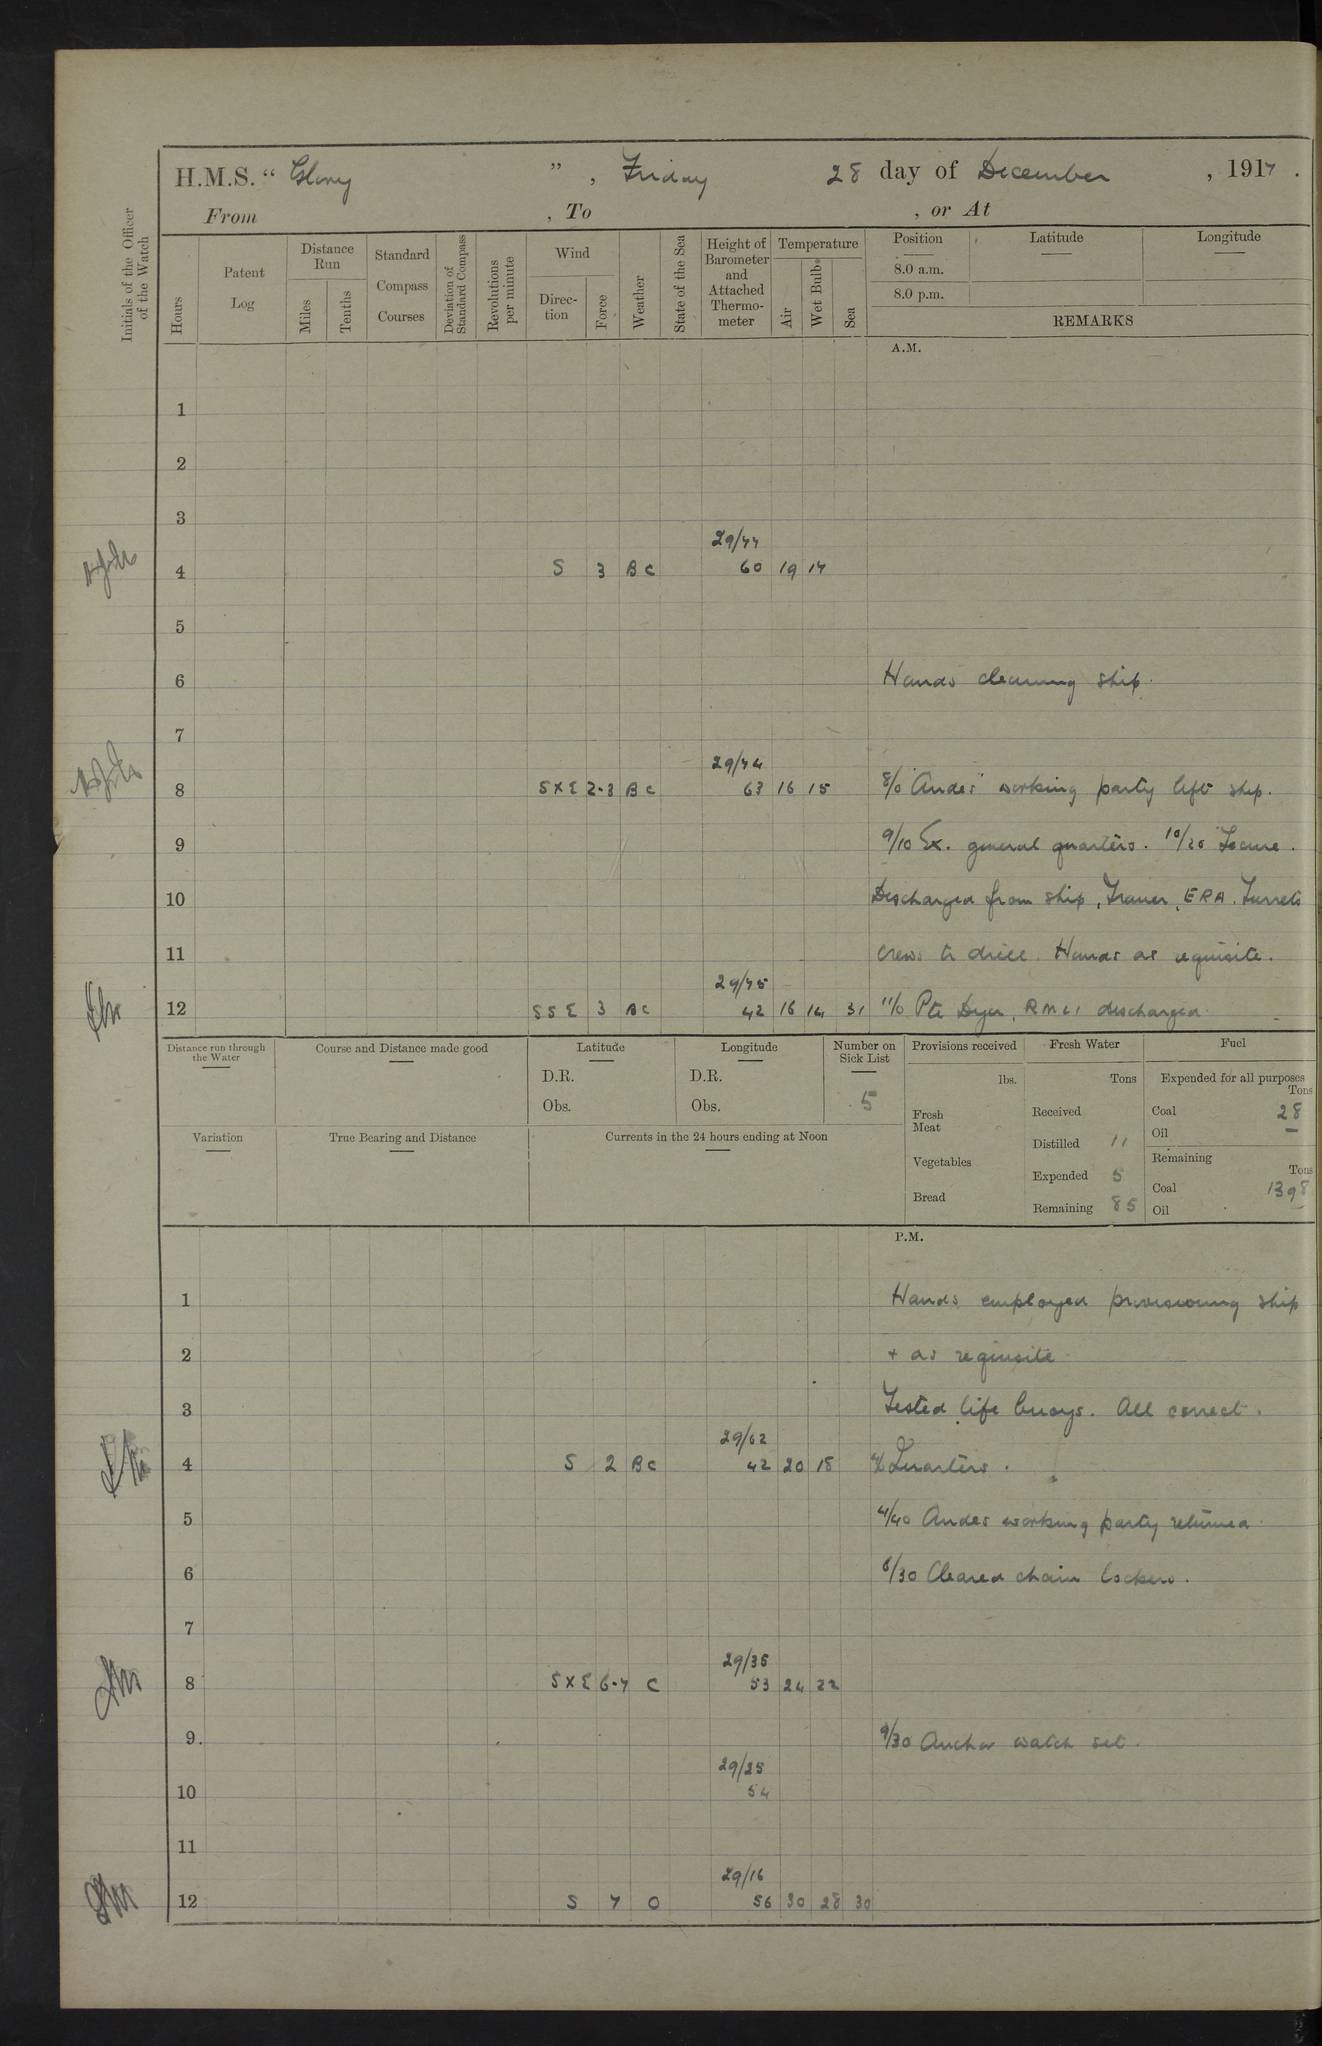 H.M.S. “ Glory ” , Friday 28 day of December , 1917 .
From , To , or At
Initials of the Officer of the Watch
Hours
Patent Log
Distance Run
Miles
Tenths
Standard Compass Courses
Deviation of Standard Compass
Revolutions per minute
Wind
Direction
Force
Weather
State of the Sea
Height of Barometer and Attached Thermometer
Temperature
Air
Wet Bulb
Sea
Position
Latitude
Longitude
8.0 a.m.
8.0 p.m.
REMARKS
A.M.
1
2
3
29/77
4 S 3 BC 60 19 17
5
6 Hands cleaning ship.
7
29/74
8 S X E 2-3 BC 63 16 15 8/0 "Andes" working party left ship.
9 9/10 Ex. general quarters. 10/20 Secure.
10 Discharged from ship, ERA. Turrets
11 crews to drill. Hands as requisite.
29/75
12 SSE 3 BC 42 16 14 31 11/0 Pte Dyer, RMLI discharged.
Distance run through the Water
Course and Distance made good
Latitude
D.R.
Obs.
Longitude
D.R.
Obs.
Number on Sick List
5
Provisions received
lbs.
Fresh Meat
Vegetables
Bread
Fresh Water
Tons
Received
Distilled 11
Expended 5
Remaining 85
Fuel
Expended for all purposes
Tons
Coal 28
Oil –
Remaining
Tons
Coal 1398
Oil
Variation
True Bearing and Distance
Currents in the 24 hours ending at Noon
P.M.
1 Hands employed provisioning ship
2 + as requisite
3 Tested life buoys. All correct.
29/62
4 S 2 BC 42 20 18 Quarters.
5 4/40 Andes working party returned.
6 6/30 Cleared chain lockers.
7
29/35
8 S X E 6-7 C 53 24 22
9 9/30 Anchor watch set.
29/25
10 54
11
29/16
12 S 7 O 56 30 28 30